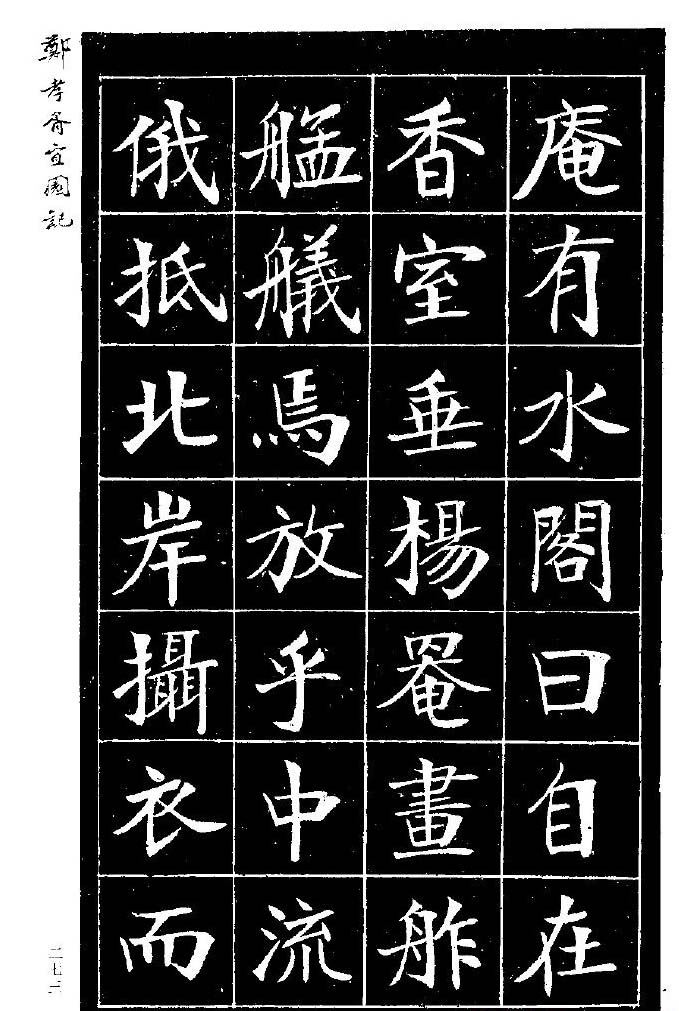 庵有水閣曰自在
香室垂楊罨畫舴
艋艤焉放乎中流
俄抵北岸攝衣而
鄭孝胥宜園記
二七二